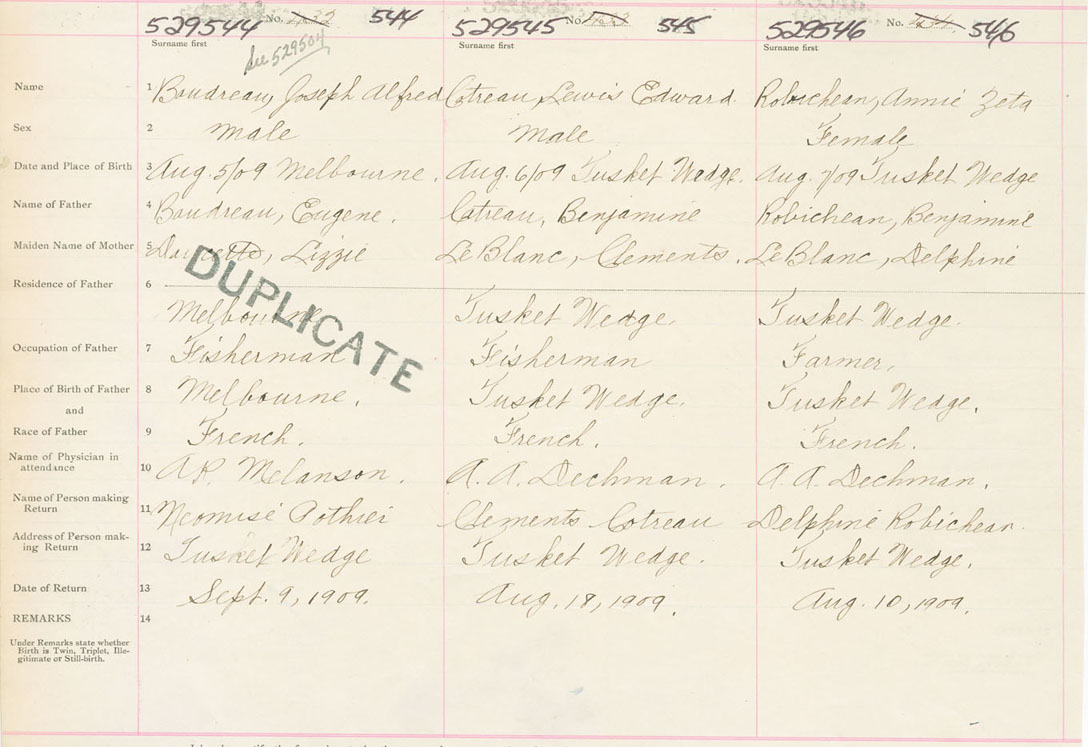 529544 No. 544 529545 No. 545 529546 No. 546
Surname first See 529504 Surname first Surname first
Name 1 Boudreau, Joseph Alfred Cotreau, Lewis Edward. Robicheau, Annie Zeta
Sex 2 Male Male Female
Date and Place of Birth 3 Aug. 5/09 Melbourne. Aug. 6/09 Tusket Wedge. Aug. 7/09 Tusket Wedge
Name of Father 4 Boudreau, Eugene. Cotreau, Benjamine Robicheau, Benjamine
Maiden Name of Mother 5 Lizzie LeBlanc, Clements. LeBlanc, Delphine
Residence of Father 6
Melbourne Tusket Wedge, Tusket Wedge.
DUPLICATE
Occupation of Father 7 Fisherman Fisherman Farmer,
Place of Birth of Father 8 Melbourne, Tusket Wedge, Tusket Wedge,
and
Race of Father 9 French. French. French.
Name of Physician in
attendance 10 A.P. Melanson. A. A. Dechman. A. A. Dechman.
Name of Person making
Return 11 Neomise Pothier Clements Cotreau Delphine Robicheau.
Address of Person mak-
ing Return 12 Tusket Wedge Tusket Wedge. Tusket Wedge.
Date of Return 13 Sept. 9, 1909. Aug. 18, 1909. Aug. 10, 1909.
REMARKS 14
Under Remarks state whether
Birth is Twin, Triplet, Ille-
gitimate or Still-birth.